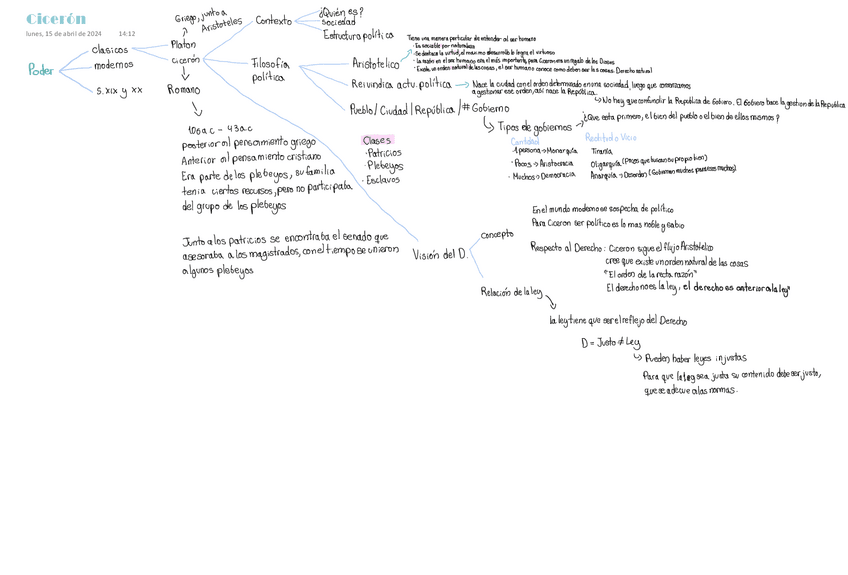 Cicerón
lunes, 15 de abril de 2024 14:12
Poder
clasicos
modernos
s. xix y xx
Griego, junto a
Aristoteles
Platon
cicerón
Romano
106 a.c - 43 a.c
posterior al pensamiento griego
Anterior al pensamiento cristiano
Era parte de los plebeyos, su familia
tenia ciertos recursos, pero no participaba
del grupo de los plebeyos
Junto a los patricios se encontraba el senado que
asesoraba a los magistrados, con el tiempo se unieron
algunos plebeyos
Contexto
¿Quién es?
sociedad
Estructura política
Filosofía
política
Aristotelico
Tiene una manera particular de entender al ser humano
- Es sociable por naturaleza
- Se destaca la virtud, el maximo desarrollo lo logra el virtuoso
- La razón en el ser humano era el más importante, para Ciceron era un regalo de los Dioses
- Existe un orden natural de las cosas, el ser humano conoce como deben ser las cosas: Derecho natural
Reivindica actv. política → Nace la ciudad con el orden determinado en una sociedad, luego que comenzamos
a gestionar ese orden, así nace la República.
↳ No hay que confundir la República de Gobierno. El Gobierno hace la gestion de la Republica
Pueblo / Ciudad / República / ≠ Gobierno
↳ Tipos de gobiernos → ¿Que esta primero, el bien del pueblo o el bien de ellos mismos?
Clases
· Patricios
· Plebeyos
· Esclavos
Cantidad
· 1 persona → Monarquía
· Pocos → Aristocracia
· Muchos → Democracia
Rectitud o Vicio
Tirania
Oligarquía (Pocos que buscan su propio bien)
Anarquía → Desorden (Gobiernan muchos para esos muchos)
Visión del D.
Concepto
En el mundo moderno se sospecha de político
Para Ciceron ser político es lo mas noble y sabio
Respecto al Derecho: Ciceron sigue el flujo Aristotelico
cree que existe un orden natural de las cosas
"El orden de la recta razón"
El derecho no es la ley, el derecho es anterior a la ley"
Relación de la ley
la ley tiene que ser el reflejo del Derecho
D = Justo ≠ Ley
↳ Pueden haber leyes injustas
Para que la ley sea justa su contenido debe ser justo,
que se adecue a las normas.